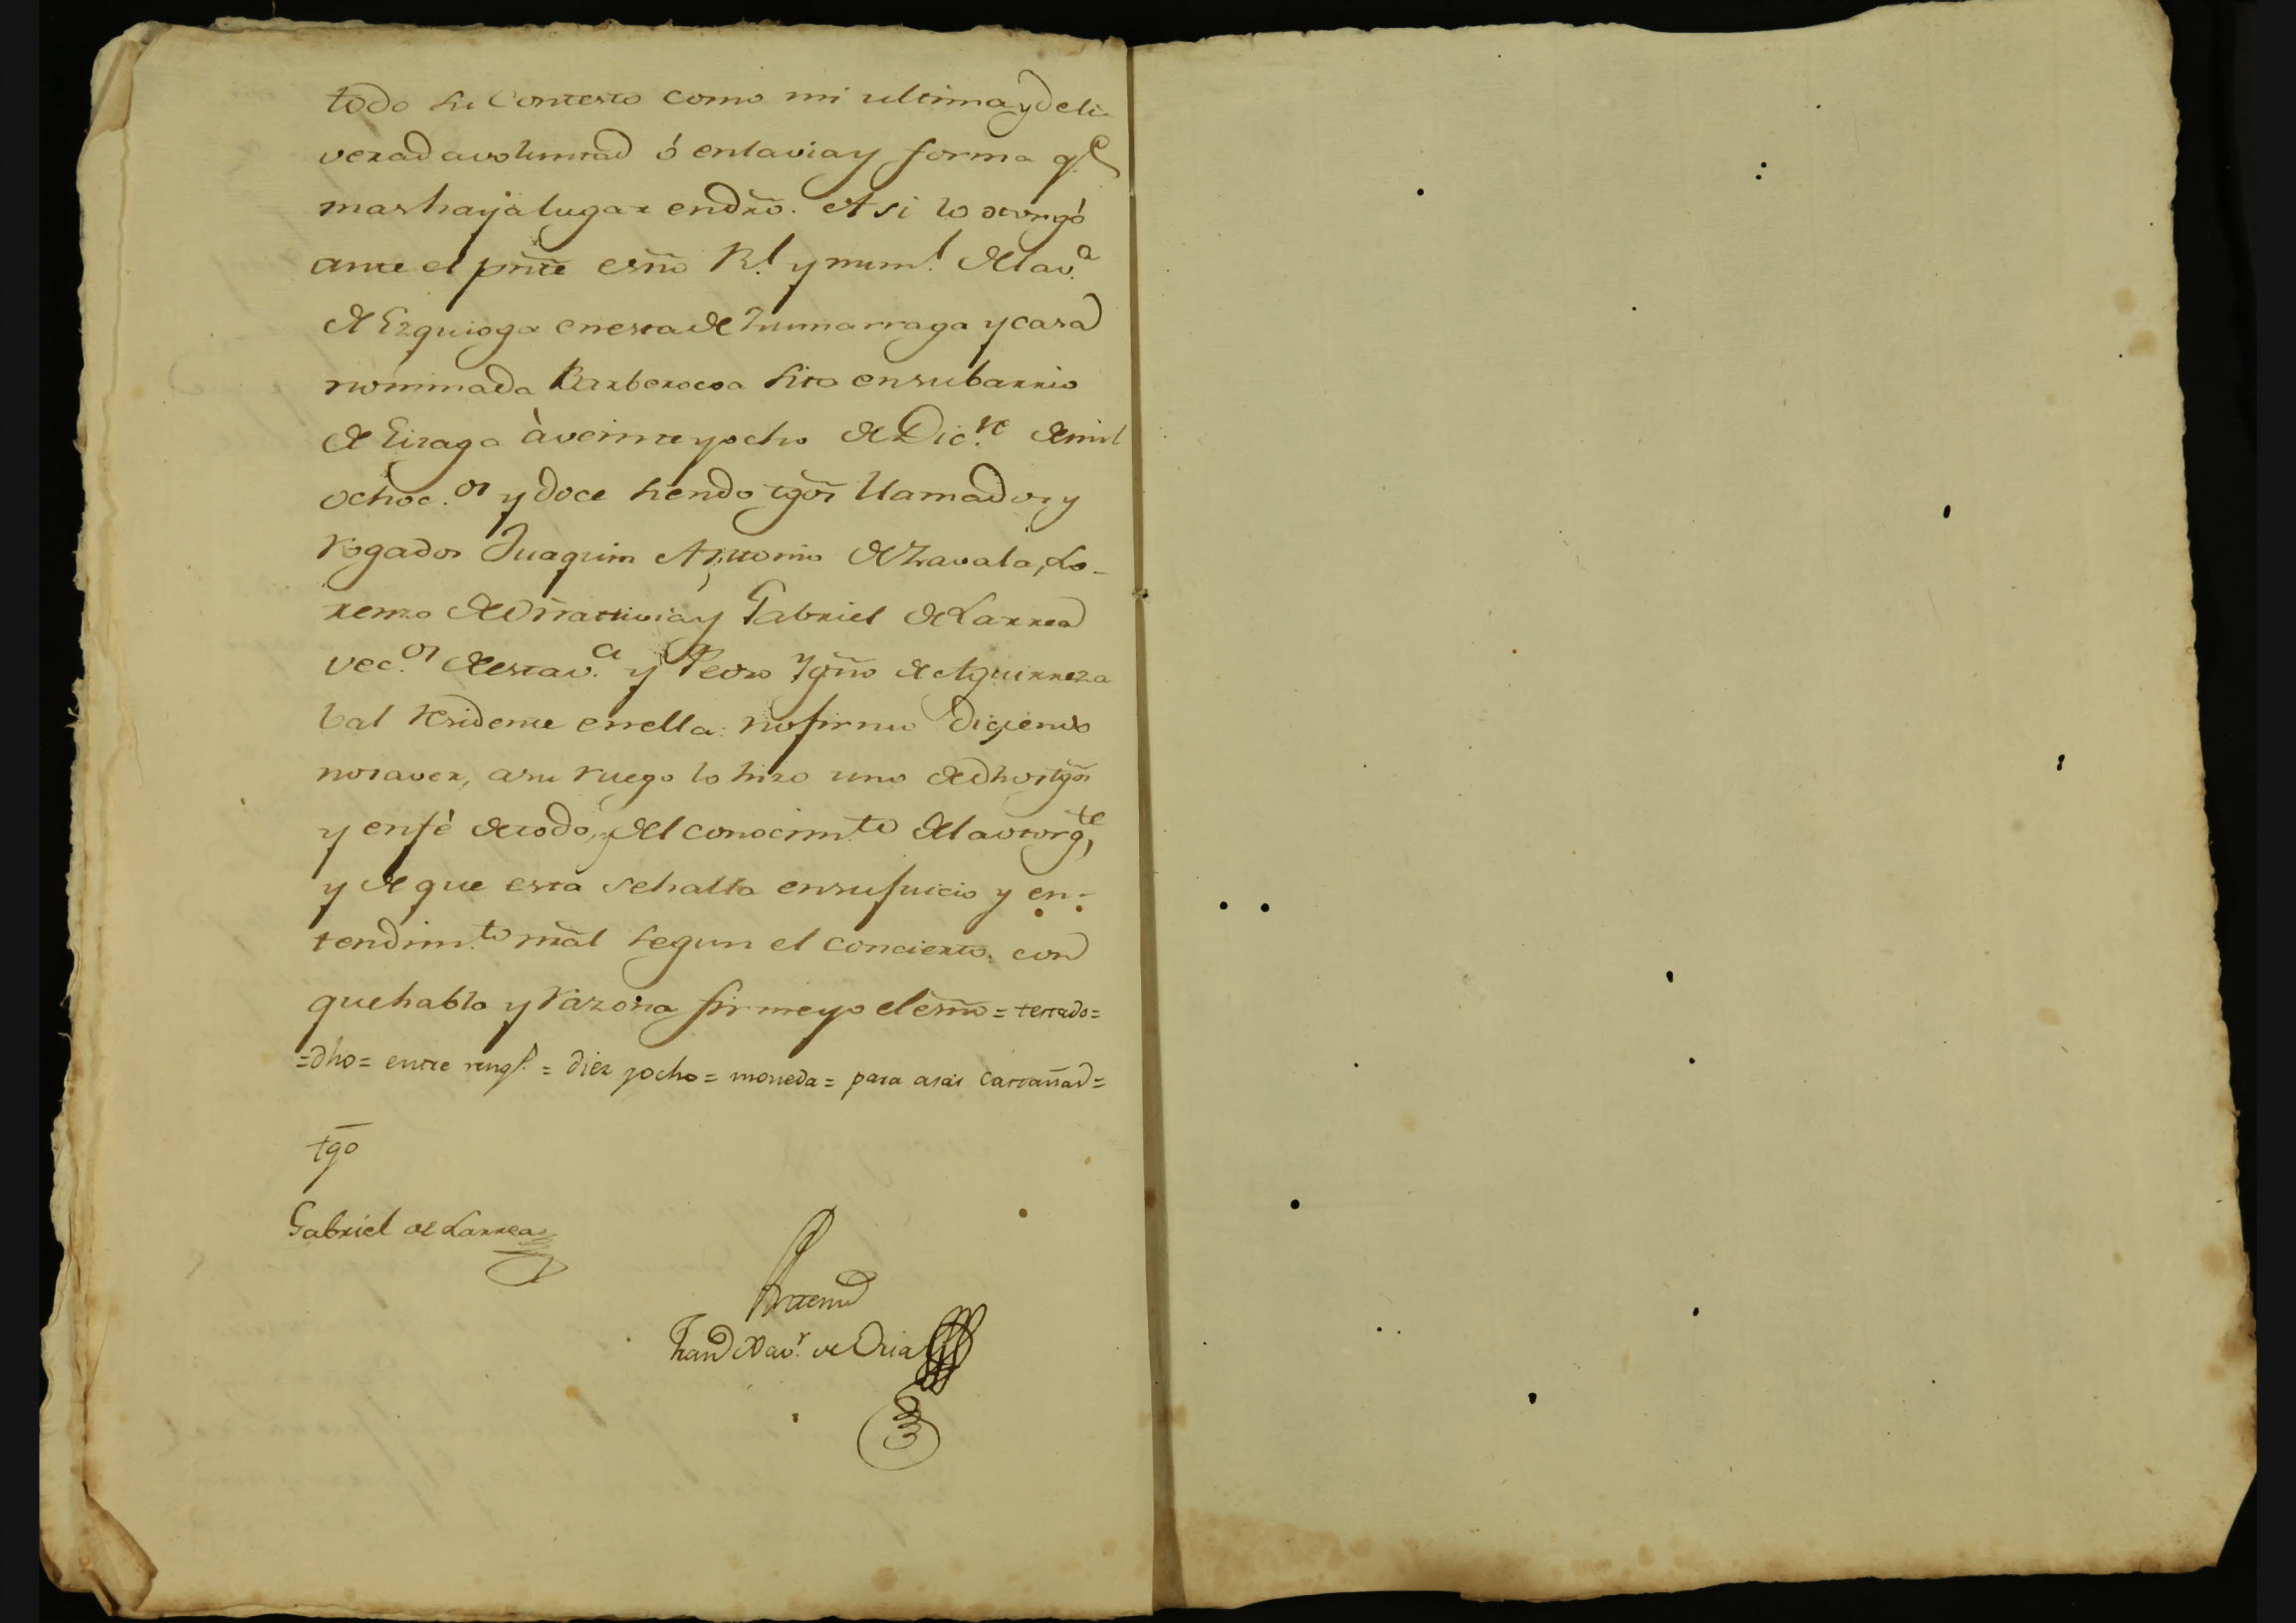 todo su contesto como mi ultima y deli-
verada voluntad ó en la via y forma q.e
mas haya lugar en dro. Asi lo otorgó
ante el pnte esno R.l y num.l de la v.a
de Ezquioga en esta de Zumarraga y casa
nominada Barberocoa sita en su barrio
de Eizaga à veinte y ocho de Dic.re de mil
ochoc.os y doce siendo tgos llamados y
rogados Juaquin Antonio de Zavala, Lo-
renzo de y Gabriel de Larrea
vec.os de esta v.a y Pedro Ygno de Aguirreza
bal residente en ella: no firmo diciendo
no saver, a su ruego lo hizo uno de dhos tgos
y en fè de todo, y del conocim.to de la otorg.te,
y de que esta se halla en su juicio y en-
tendim.to nral segun el concierto con
que habla y razona firme yo el esno = testado =
= dho = entre rengl.s = diez y ocho = moneda = para asar castañas =
tgo
Gabriel de Larrea
Ante mi
Fran.co Xav.r de Oria